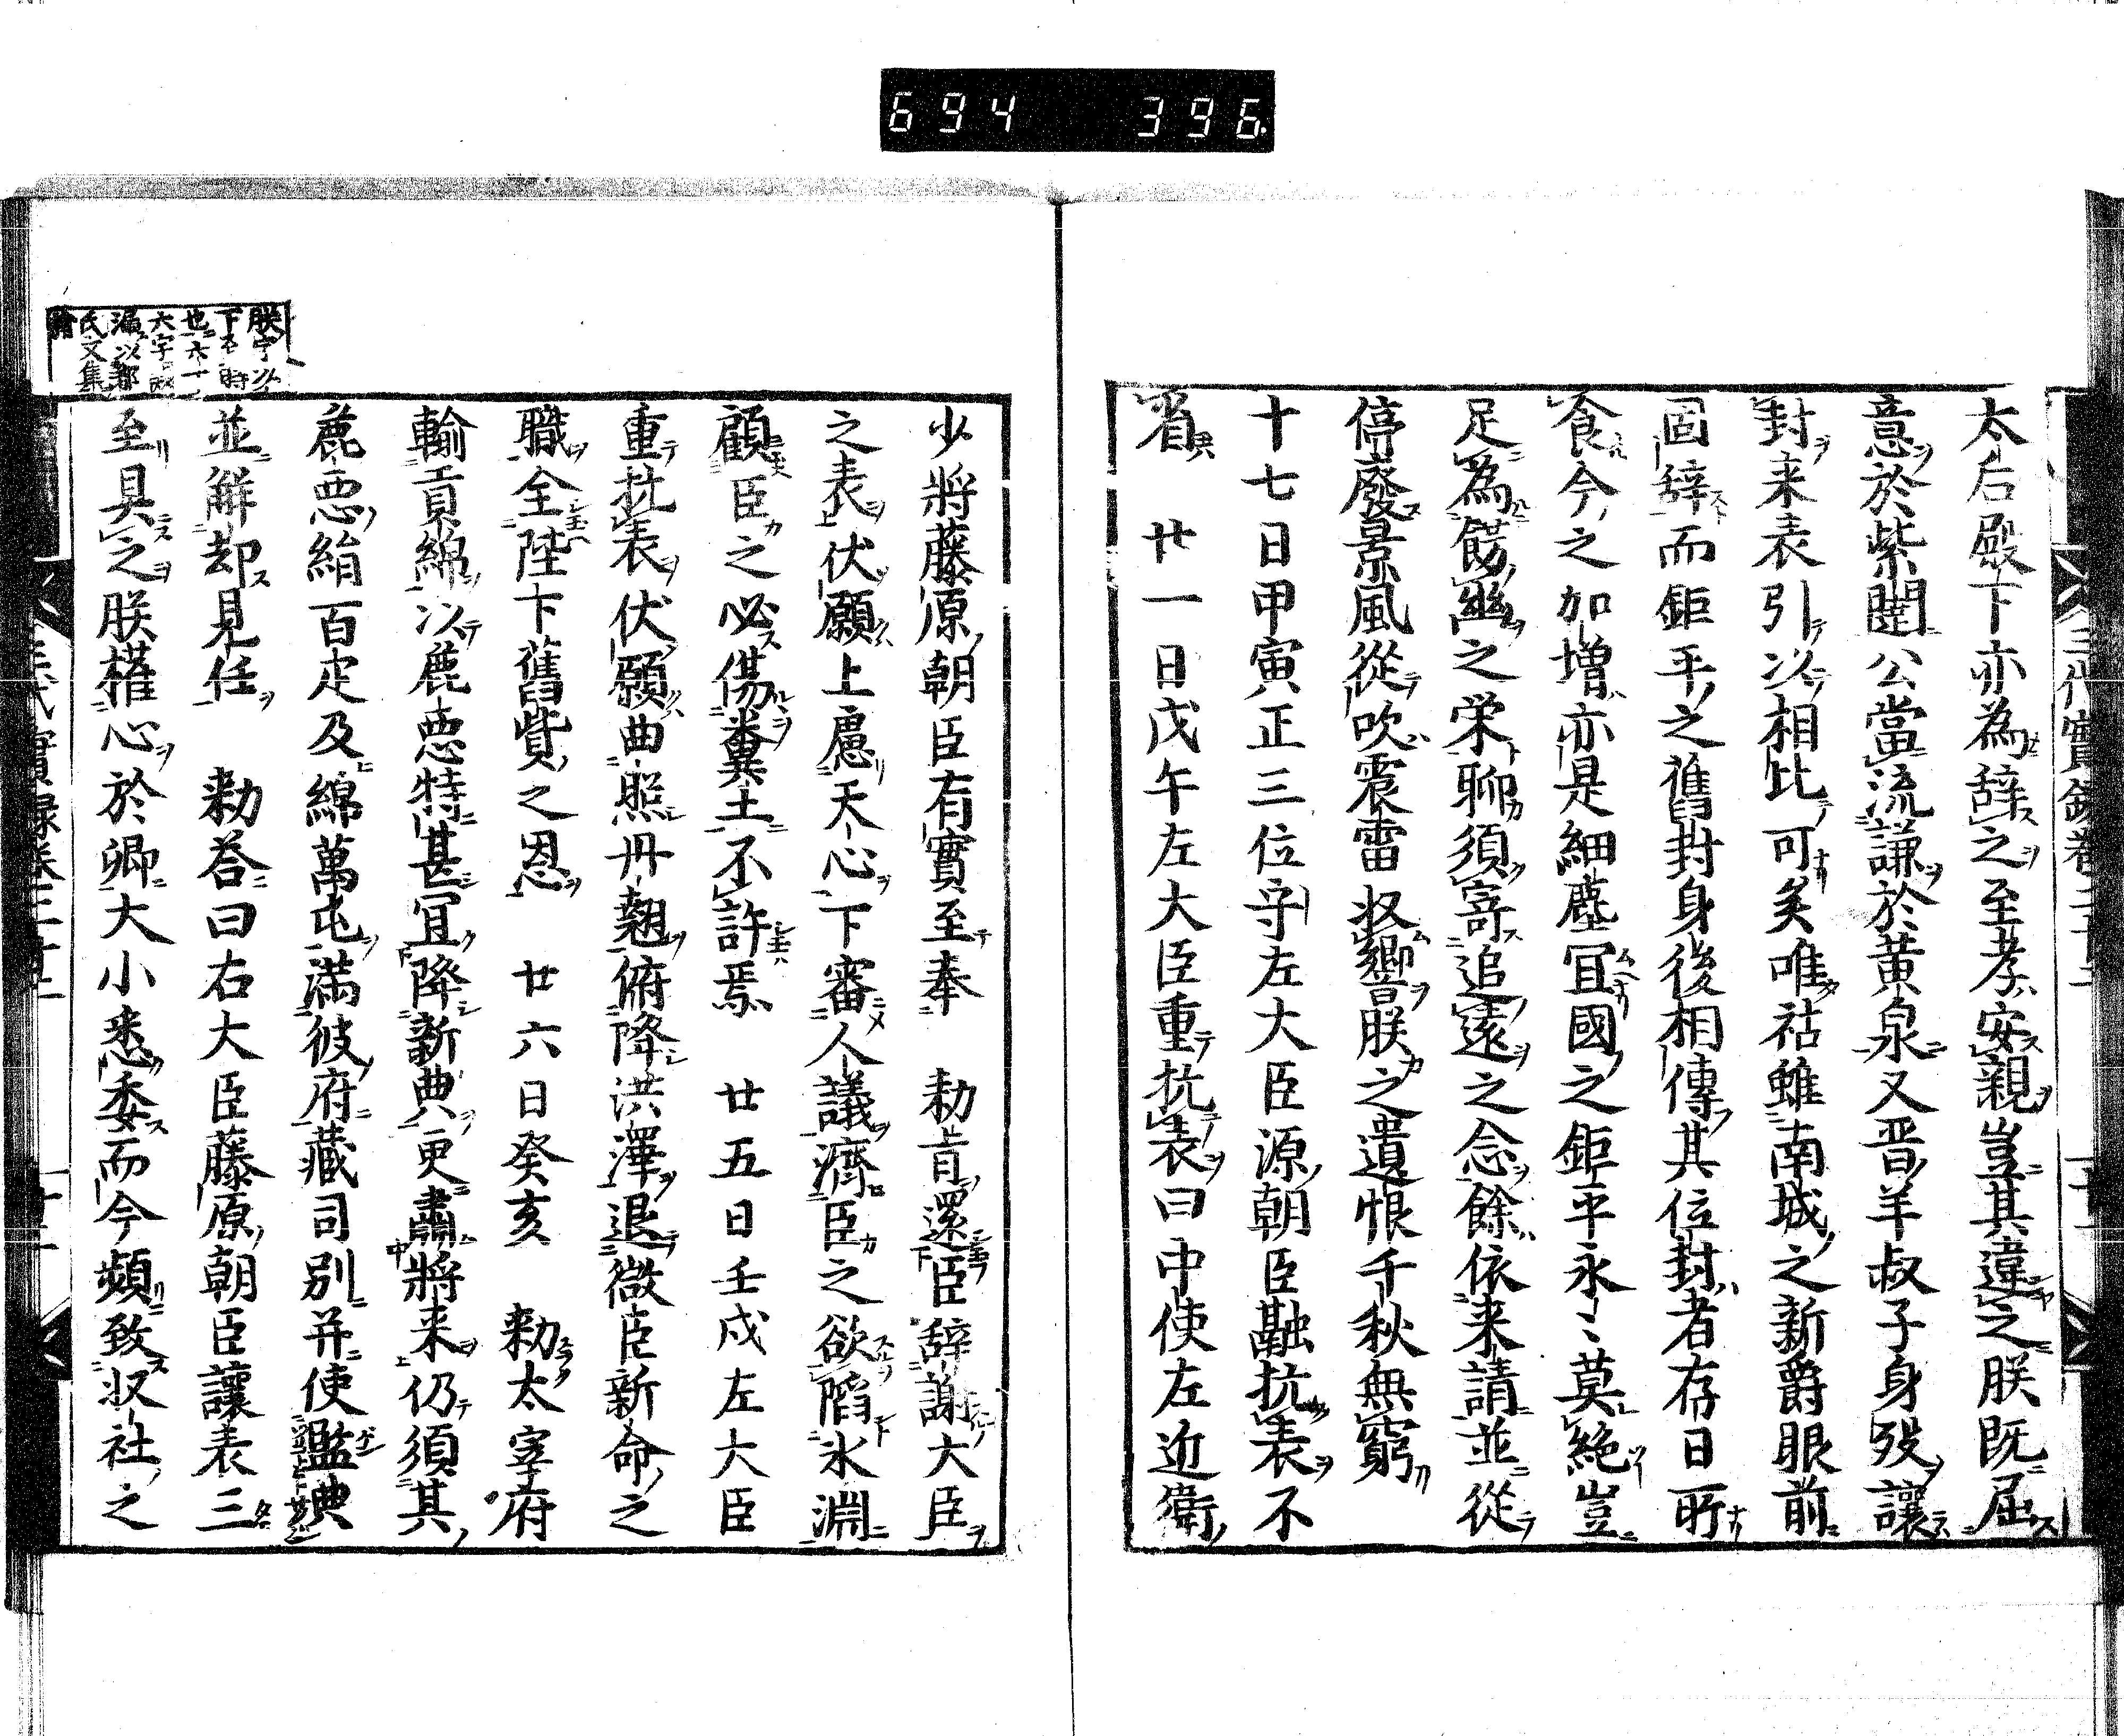 694 396
太后殿下亦為辞之至孝安親豈其違之朕既屈
意於紫闥公當流謙於黄泉又晋羊叔子身歿讓
封来表引以相比可矣唯祜雖南城之新爵眼前
固辞而鉅平之舊封身後相傳其位封者存日所
食今之加増亦是細塵冝國之鉅平永〻莫絶豈
足為餝幽之栄聊須寄追遠之念餘依来請並從
停廢景風從吹震雷収響朕之遺恨千秋無窮
十七日甲寅正三位守左大臣源朝臣融抗表不
省 廿一日戊午左大臣重抗表曰中使左近衛
少將藤原朝臣有實至奉 勅旨還臣辞謝大臣
之表伏願上慮天心下審人議濟臣之欲陷氷淵
顧臣之必傷糞土不許焉 廿五日壬戌左大臣
重抗表伏願曲照丹翹俯降洪澤退微臣新命之
職全陛下舊貲之恩 廿六日癸亥 勅太宰府
輸貢綿以麁悪特甚冝降新典更肅將来仍須其
麁悪絹百疋及綿萬屯満彼府藏司別并使監典
並解却見任 勅荅曰右大臣藤原朝臣讓表三
至具之朕權心於卿大小悉委而今頻致収社之
朕字以
下至時
也六十一
大字
漏以都
氏文集